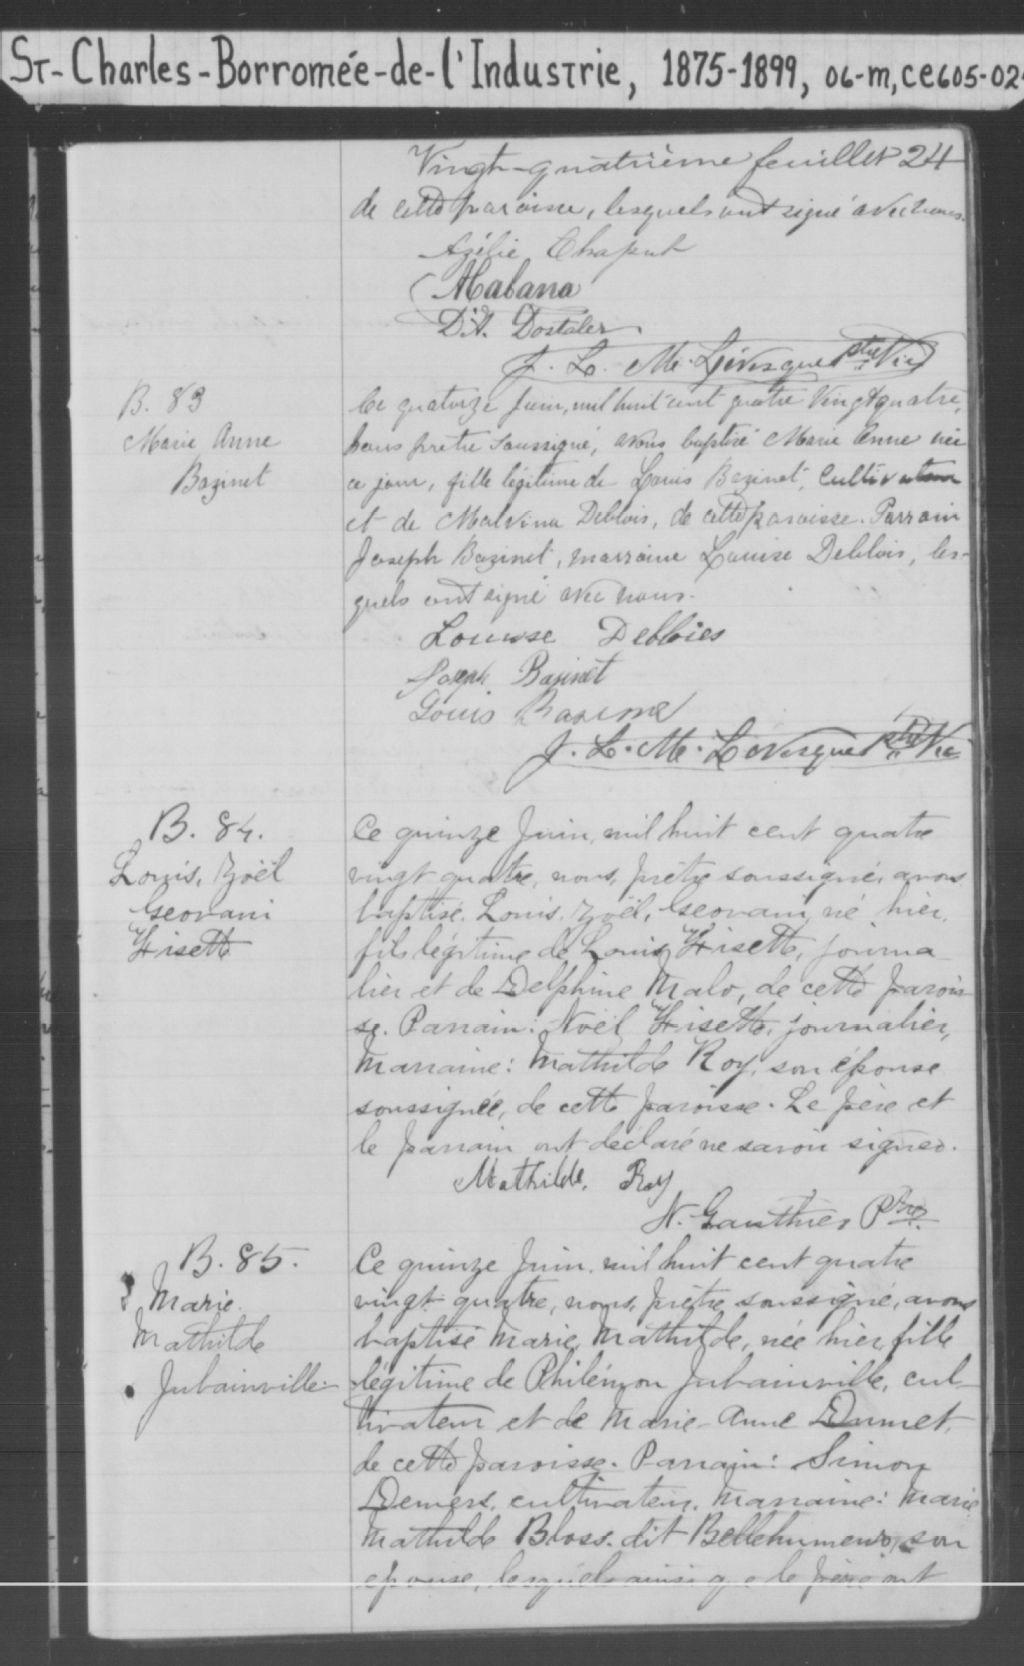 ST-Charles-Borromée-de-l'Industrie, 1875-1899, 06-m, ce605-02
Vingt-quatrième feuillet 24
de cette paroisse, lesquels ont signé avec nous.
Azélie Chaput
D. A. Dostaler
J. L. M. Lévesque Ptre Vic
B. 83
Marie Anne
Bazinet
Ce quatorze Juin, mil huit cent quatre vingt quatre,
nous prêtre soussigné, avons baptisé Marie Anne née
ce jour, fille légitime de Louis Bazinet, Cultivateur
et de Malvina Deblois, de cette paroisse. Parrain
Joseph Bazinet, marraine Louise Deblois, les-
quels ont signé avec nous.
Louisse Deblois
Joseph Basinet
Louis Basinet
J. L. M. Lévesque Ptre Vic
B. 84.
Louis, Zoël
Geovani
Frisette
Ce quinze Juin, mil huit cent quatre
vingt quatre, nous, prêtre soussigné, avons
baptisé Louis, Zoël, Geovani, né hier,
fils légitime de Louis Frisette, journa
lier et de Delphine Malo, de cette parois-
se. Parrain: Noël Frisette, journalier,
Marraine: Mathilde Roy, son épouse
soussignée, de cette paroisse. Le père et
le parrain ont déclaré ne savoir signer.
Mathilde. Roy
N. Gauthier Ptre
B. 85.
Marie
Mathilde
Jubainville
Ce quinze Juin, mil huit cent quatre
vingt quatre, nous, prêtre soussigné, avons
baptisé Marie, Mathilde, née hier, fille
légitime de Philémon Jubainville, cul-
tivateur et de Marie-Anne Dumet,
de cette paroisse. Parrain: Simon
Demers, cultivateur, Marraine: Marie
Mathilde Bloss. dit Bellehumeur, son
épouse, lesquels ainsi que le père ont